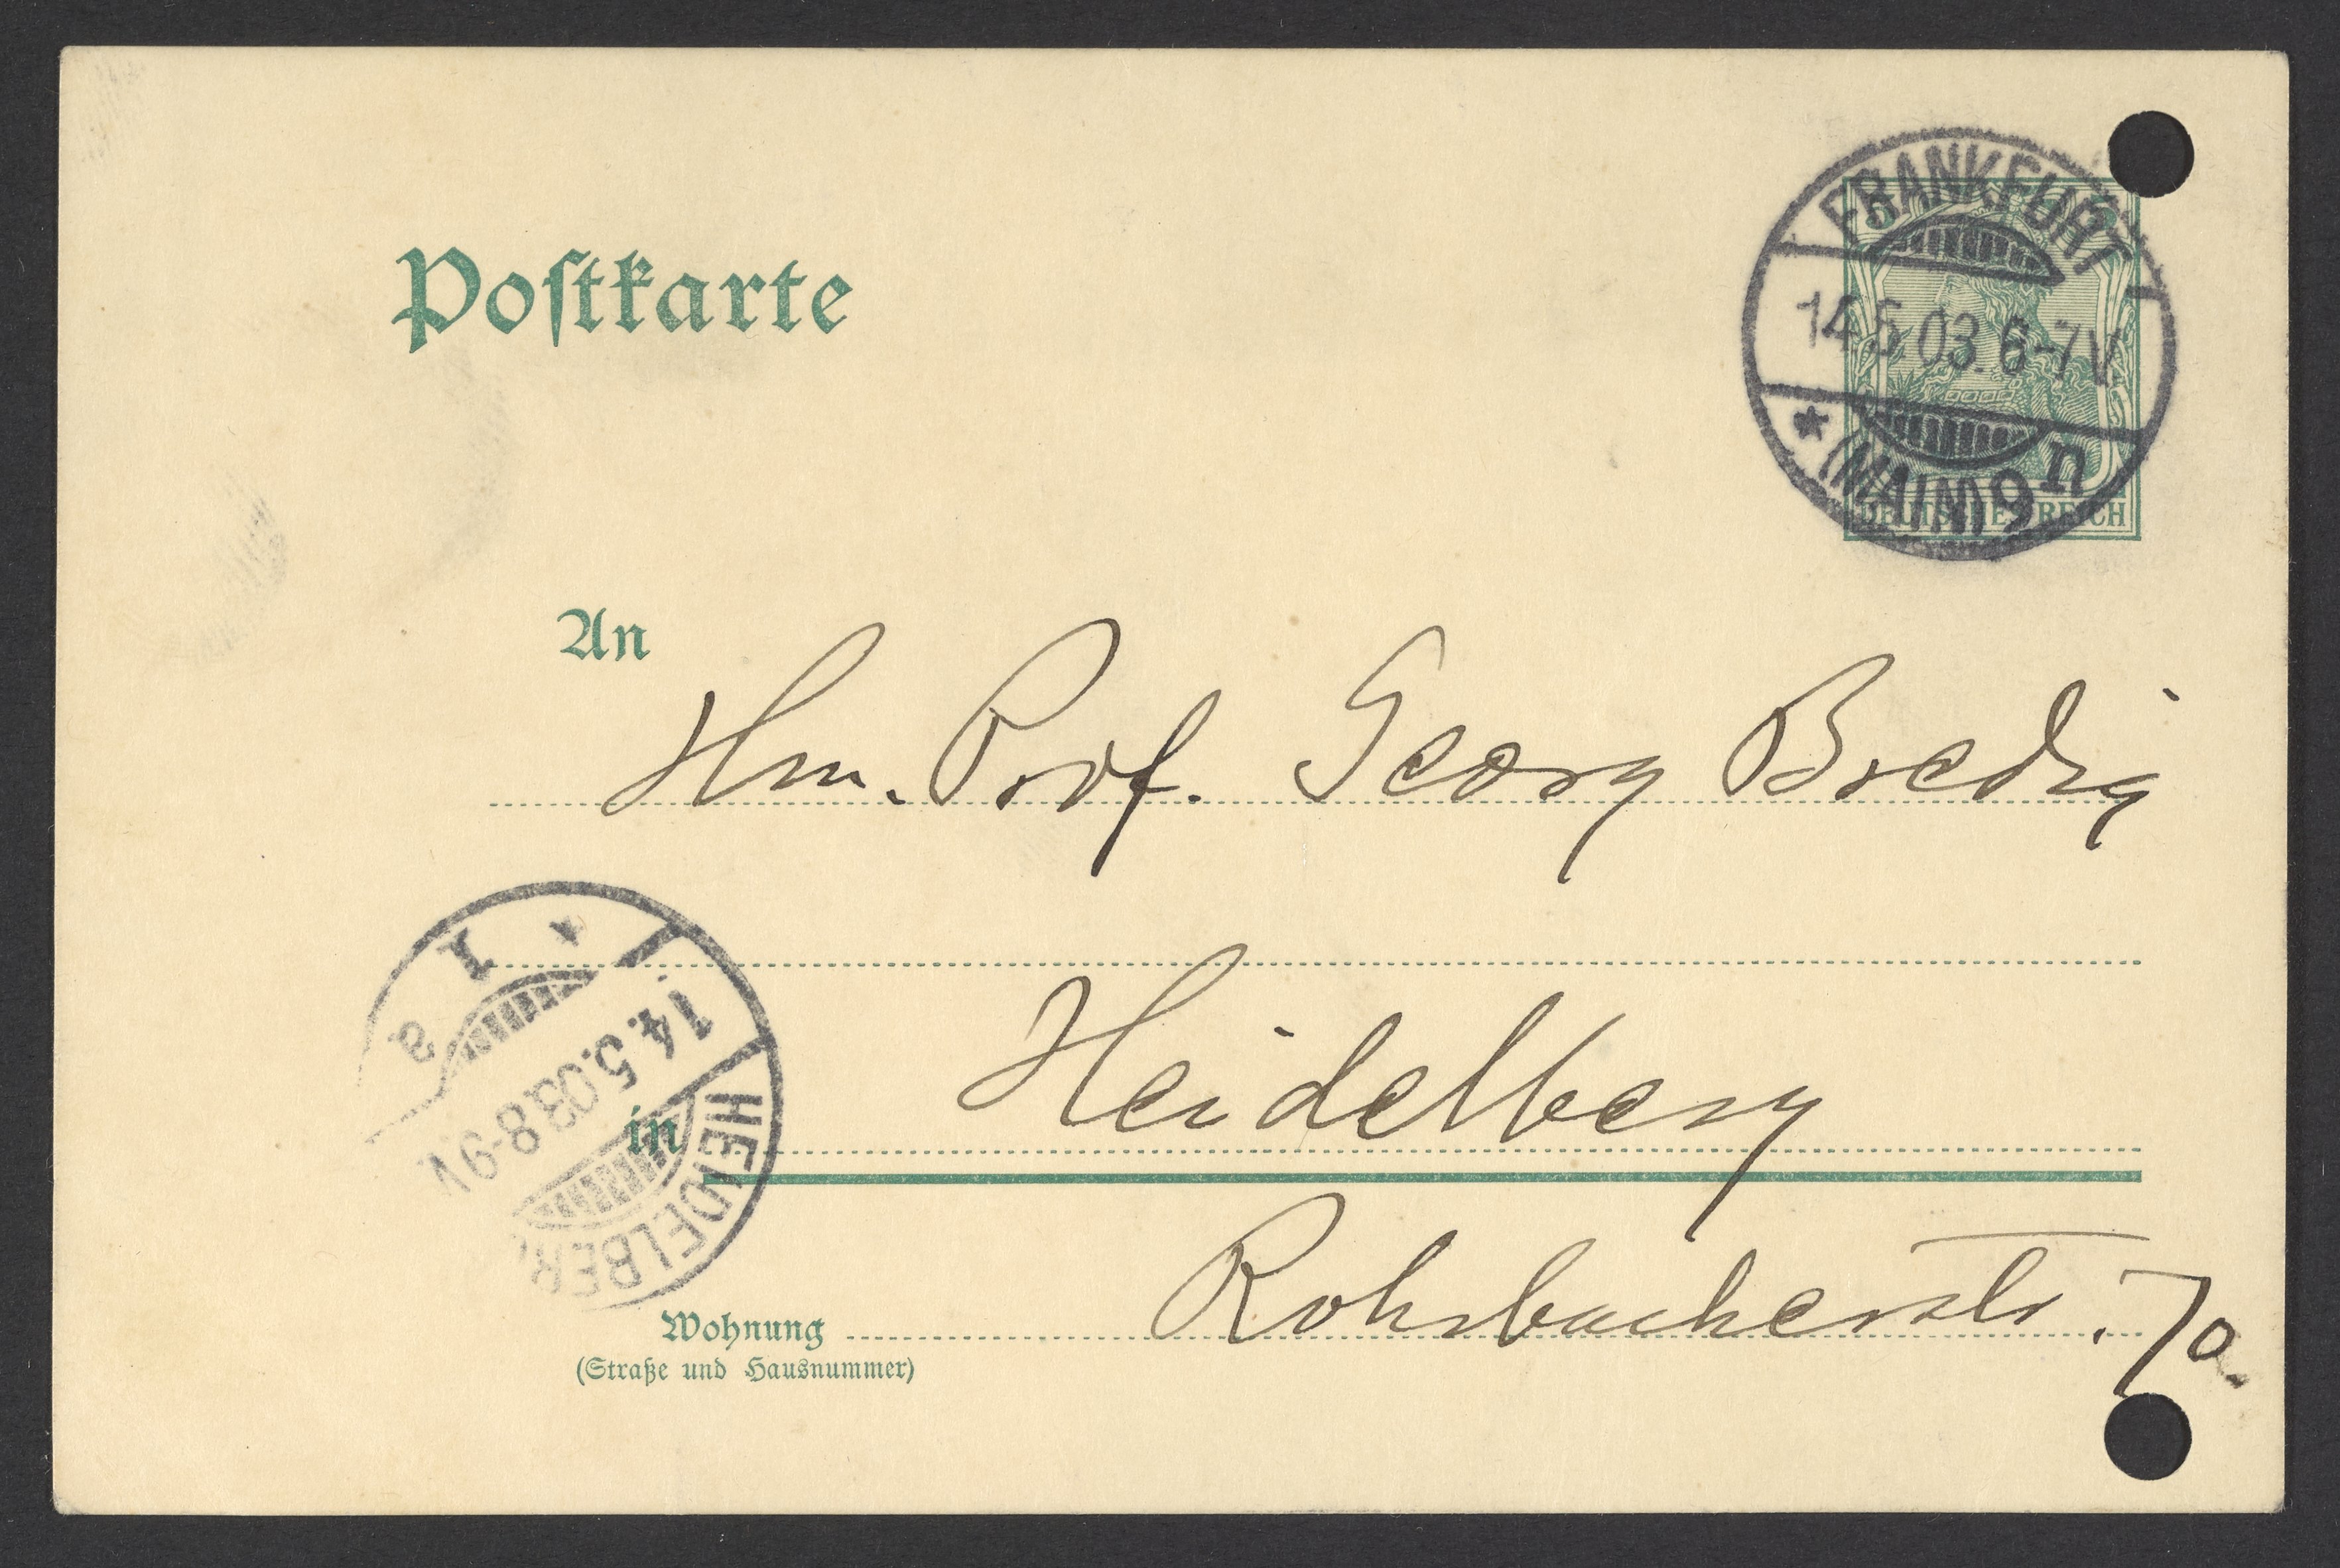 Postkarte
FRANKFURT
14.5.03.6-7V.
* (MAIN) 9 n
DEUTSCHES REICH
An
Hrn. Prof. Georg Bredig
* 1 a
14.5.03.8-9V.
HEIDELBER
in
Heidelberg
Rohrbacherstr. 70.
Wohnung
(Straße und Hausnummer)